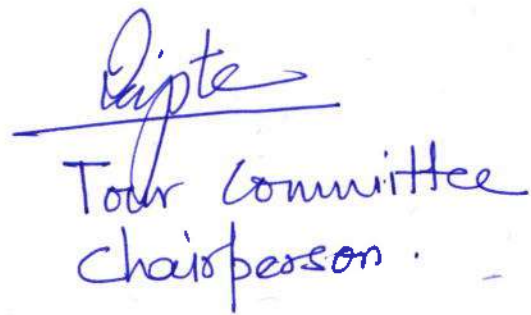 Tour Committee
Chairperson.